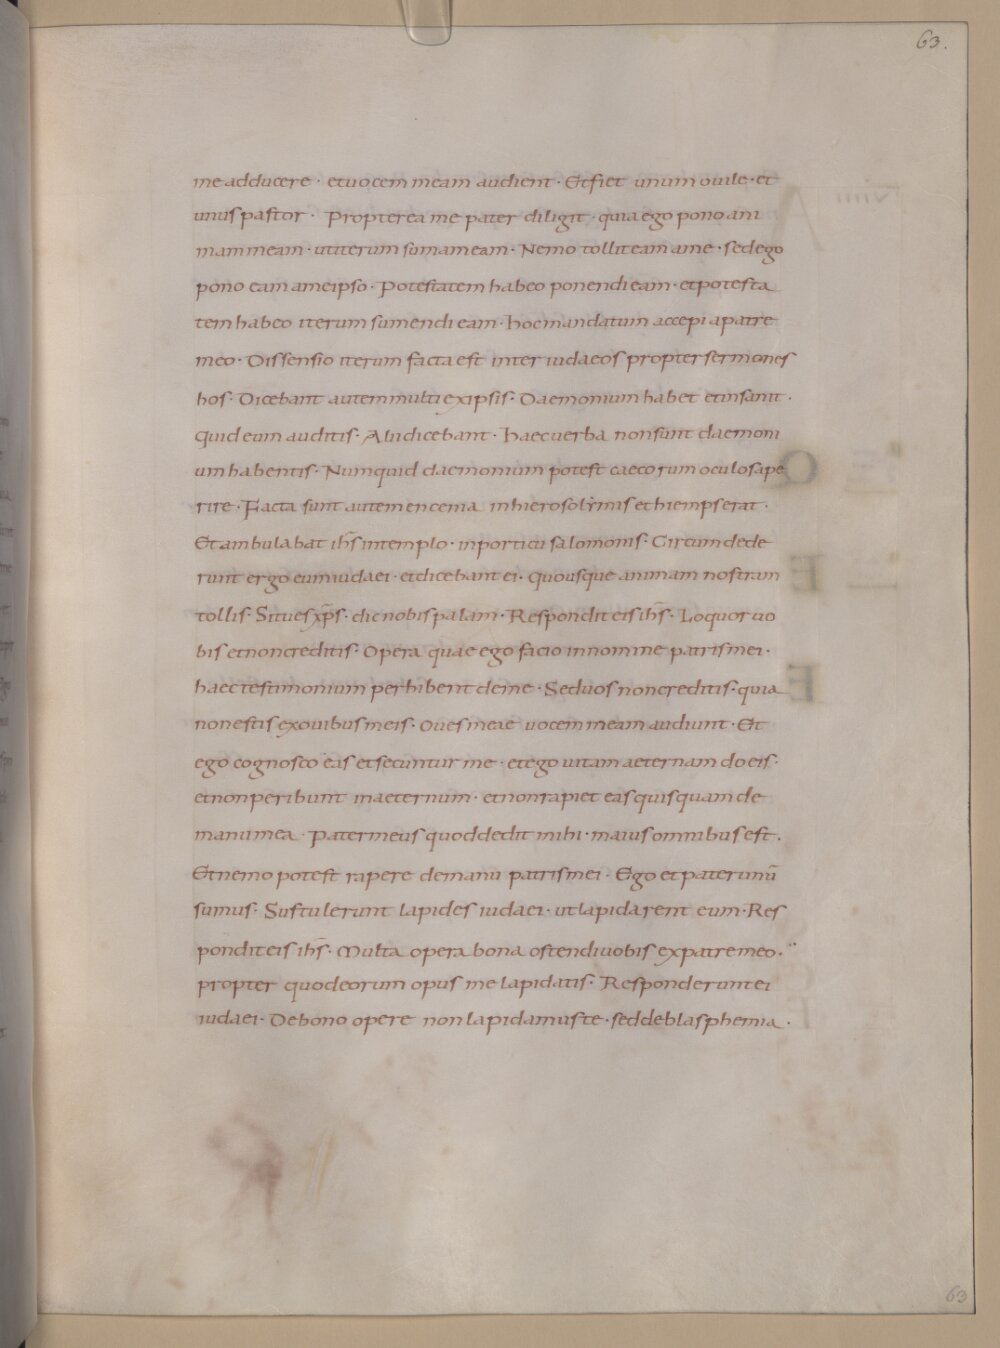 63.
me adducere · et uocem meam audient · Et fiet unum ouile · et
unus pastor · Propterea me pater diligit · quia ego pono ani
mam meam · ut iterum sumam eam · Nemo tollit eam a me · sed ego
pono eam a me ipso · Potestatem habeo ponendi eam · et potesta
tem habeo iterum sumendi eam · hoc mandatum accepi a patre
meo · Dissensio iterum facta est inter iudaeos propter sermones
hos · Dicebant autem multi ex ipsis · Daemonium habet et insanit ·
quid eum auditis · Alii dicebant · haec uerba non sunt daemoni
um habentis · Numquid daemonium potest caecorum oculos ape
rire · Facta sunt autem encenia in hierosolymis et hiemps erat ·
Et ambulabat ihs̄ in templo · in porticu salomonis · Circumdede
runt ergo eum iudaei · et dicebant ei · quousque animam nostram
tollis · Si tu es xp̄s · dic nobis palam · Respondit eis ihs̄ · Loquor uo
bis et non creditis · Opera quae ego facio in nomine patris mei ·
haec testimonium perhibent de me · Sed uos non creditis · quia
non estis ex ouibus meis · Oues meae uocem meam audiunt · Et
ego cognosco eas et secuntur me · et ego uitam aeternam do eis ·
et non peribunt in aeternum · et non rapiet eas quisquam de
manu mea · Pater meus quod dedit mihi · maius omnibus est ·
Et nemo potest rapere de manu patris mei · Ego et pater unū
sumus · Sustulerunt lapides iudaei · ut lapidarent eum · Res
pondit eis ihs̄ · Multa opera bona ostendi uobis ex patre meo ·
propter quod eorum opus me lapidatis · Responderunt ei
iudaei · De bono opere non lapidamus te · sed de blasphemia ·
63